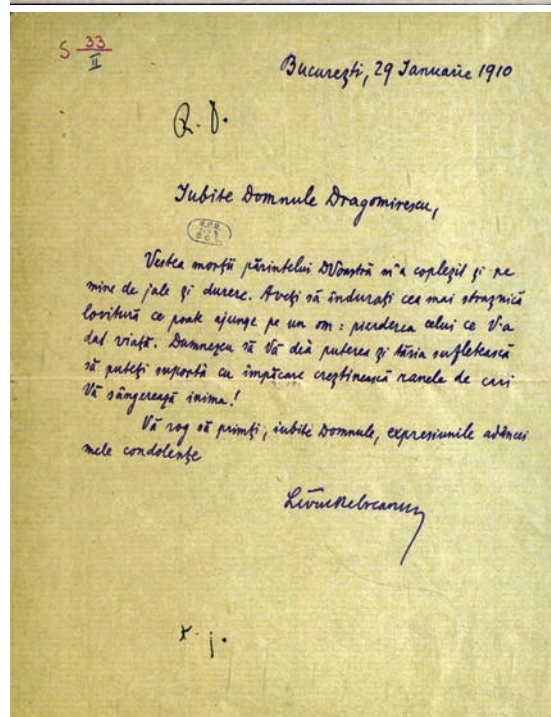 S 33
II
București, 29 Ianuarie 1910
Iubite Domnule Dragomirescu,
Vestea morții părintelui DVoastră m'a copleșit și pe
mine de jale și durere. Aveți să îndurați cea mai straznică
lovitură ce poate ajunge pe un om: pierderea celui ce V'a
dat viață. Dumnezeu să Vă dea puterea și tăria sufletească
să puteți suportà cu împăcare creștinească ranele de cari
Vă sângerează inima!
Vă rog să primiți, iubite Domnule, expresiunile adâncei
mele condolențe
Liviu Rebreanu